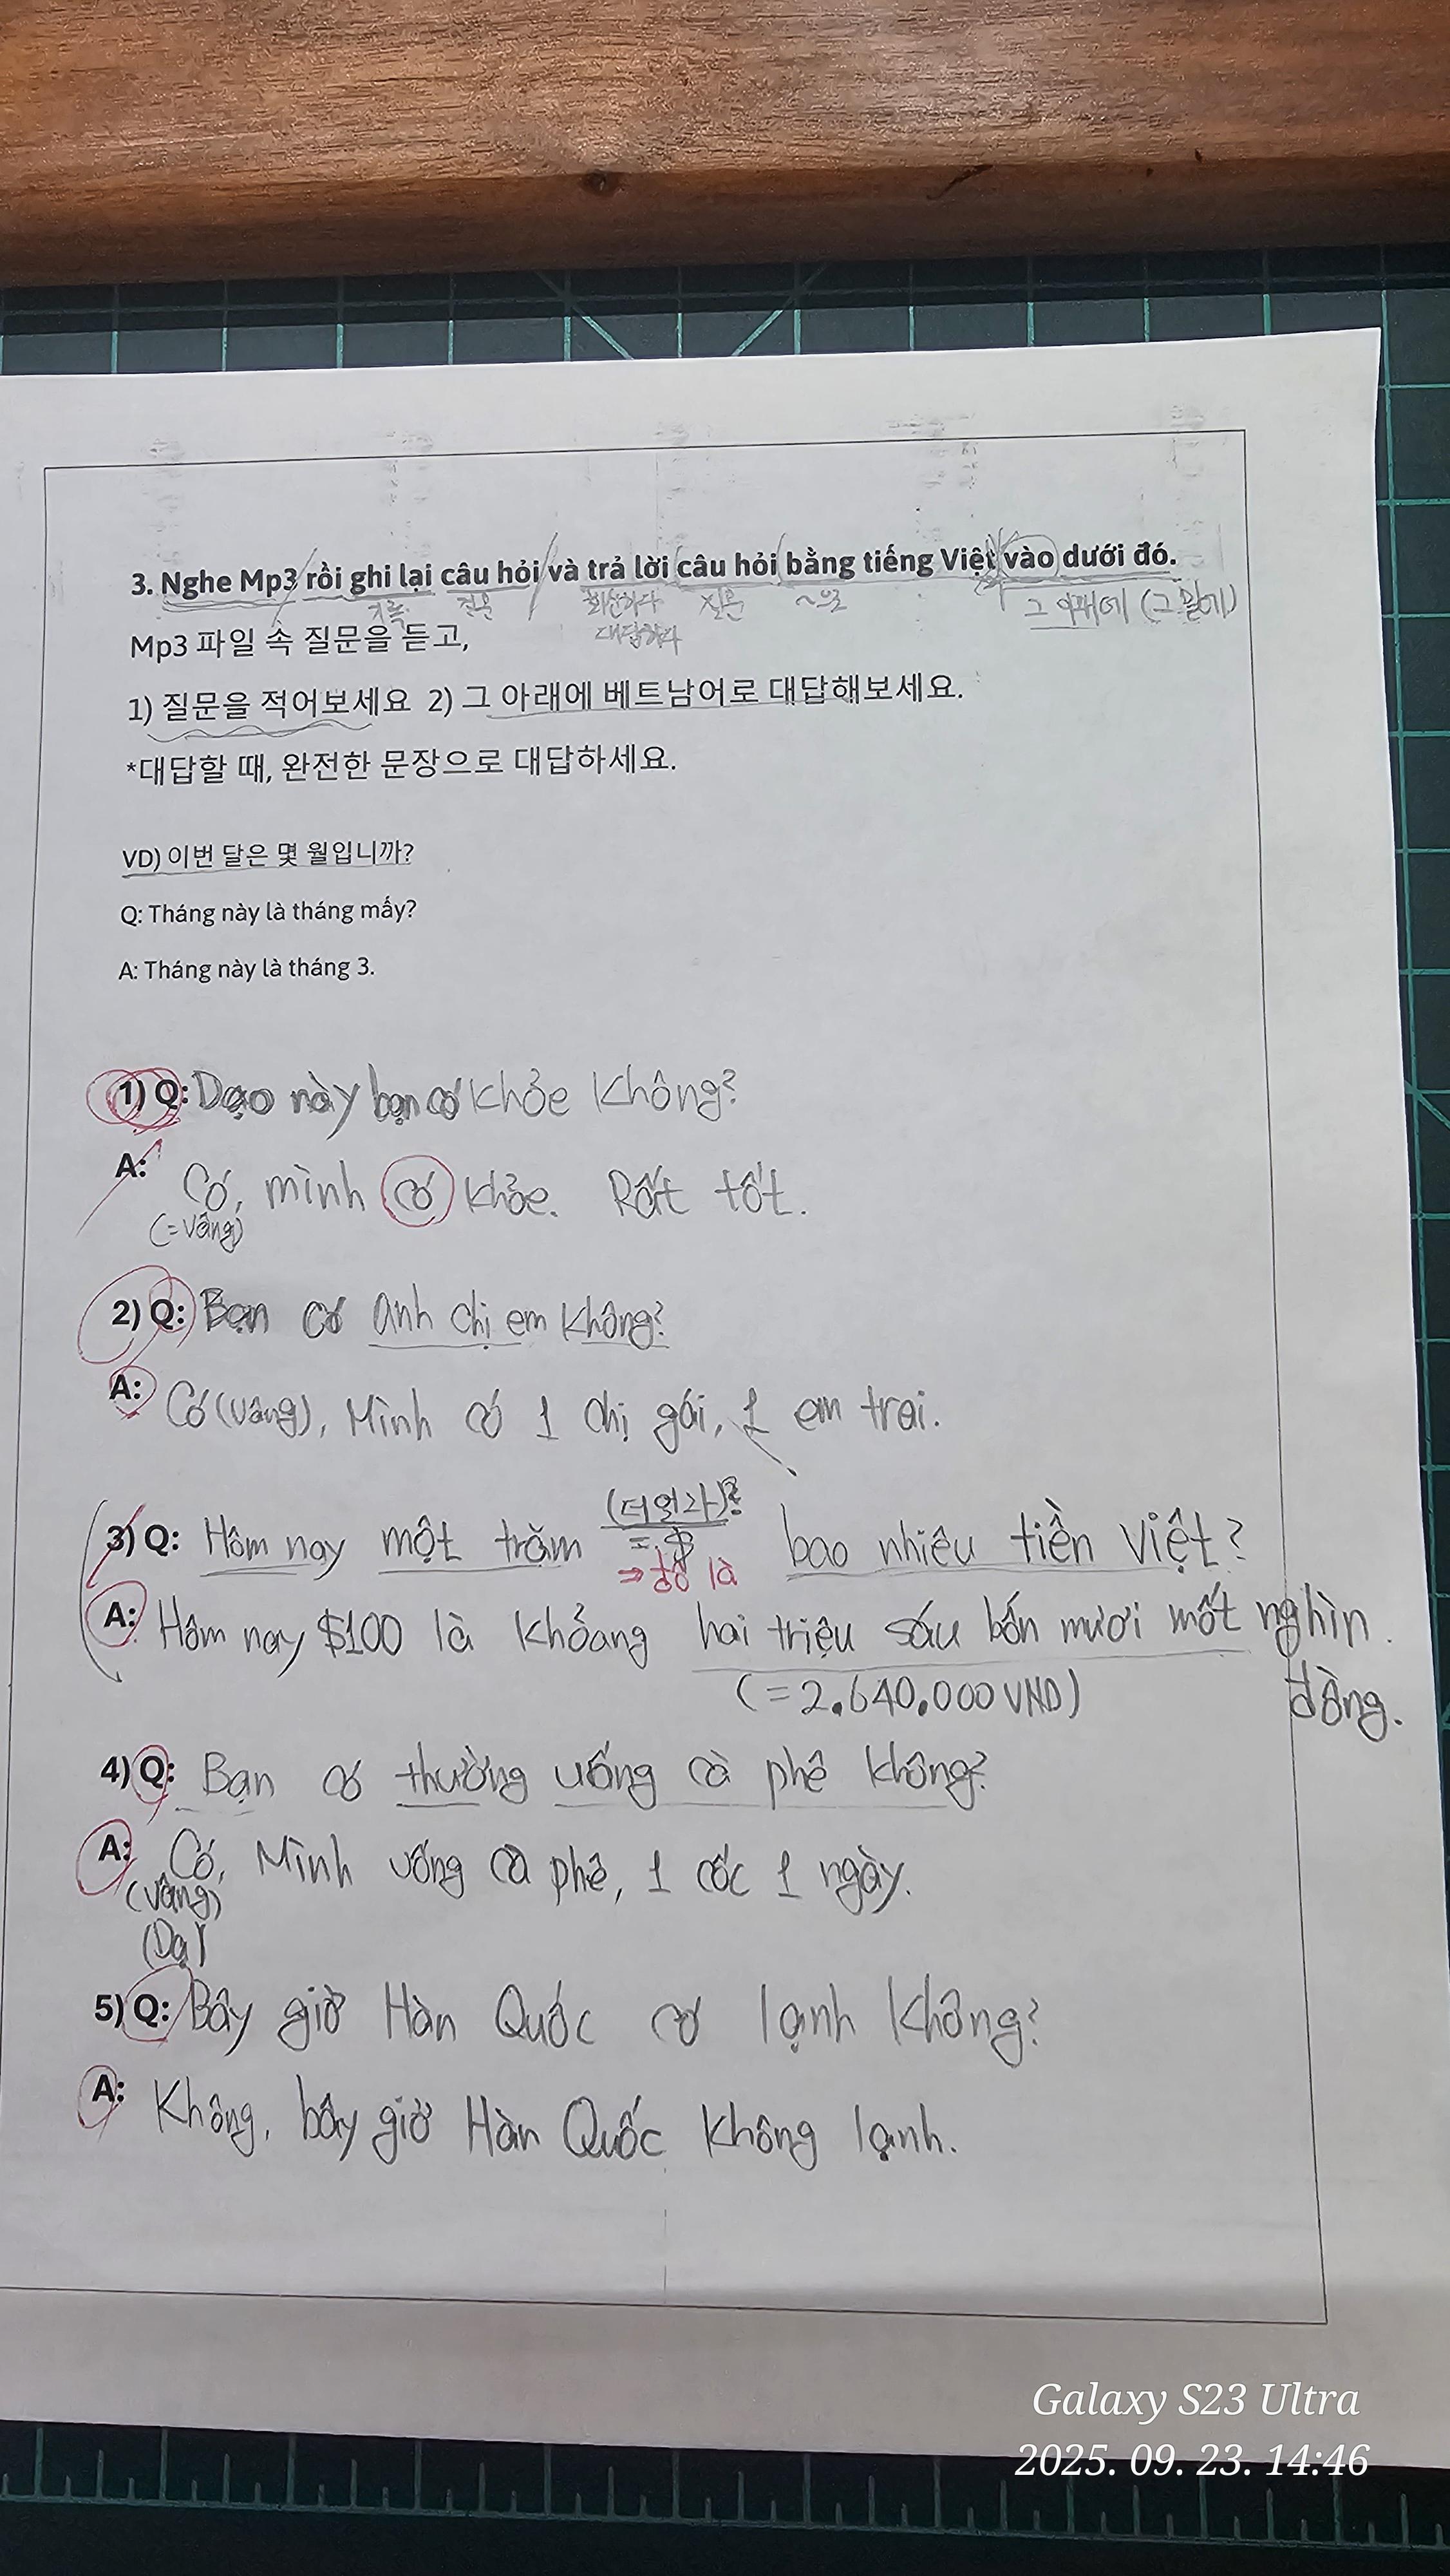 3. Nghe Mp3 rồi ghi lại câu hỏi và trả lời câu hỏi bằng tiếng Việt vào dưới đó.
기록 질문 회신하다 질문 ~으로 그 아래에 (그 밑에)
대답하다
Mp3 파일 속 질문을 듣고,
1) 질문을 적어보세요 2) 그 아래에 베트남어로 대답해보세요.
*대답할 때, 완전한 문장으로 대답하세요.
VD) 이번 달은 몇 월입니까?
Q: Tháng này là tháng mấy?
A: Tháng này là tháng 3.
1) Q: Dạo này bạn có khỏe không?
A: Có, mình có khỏe. Rất tốt.
(=vâng)
2) Q: Bạn có anh chị em không?
A: Có (vâng), Mình có 1 chị gái, 1 em trai.
(더일라)?
3) Q: Hôm nay một trăm =$ bao nhiêu tiền Việt?
⇒ đô là
A: Hôm nay $100 là khoảng hai triệu sáu bốn mươi một nghìn.
(=2.640.000 VND) đồng.
4) Q: Bạn có thường uống cà phê không?
A: Có, Mình uống cà phê, 1 cốc 1 ngày.
(vâng)
(Dạ)
5) Q: Bây giờ Hàn Quốc có lạnh không?
A: Không, bây giờ Hàn Quốc không lạnh.
Galaxy S23 Ultra
2025. 09. 23. 14:46